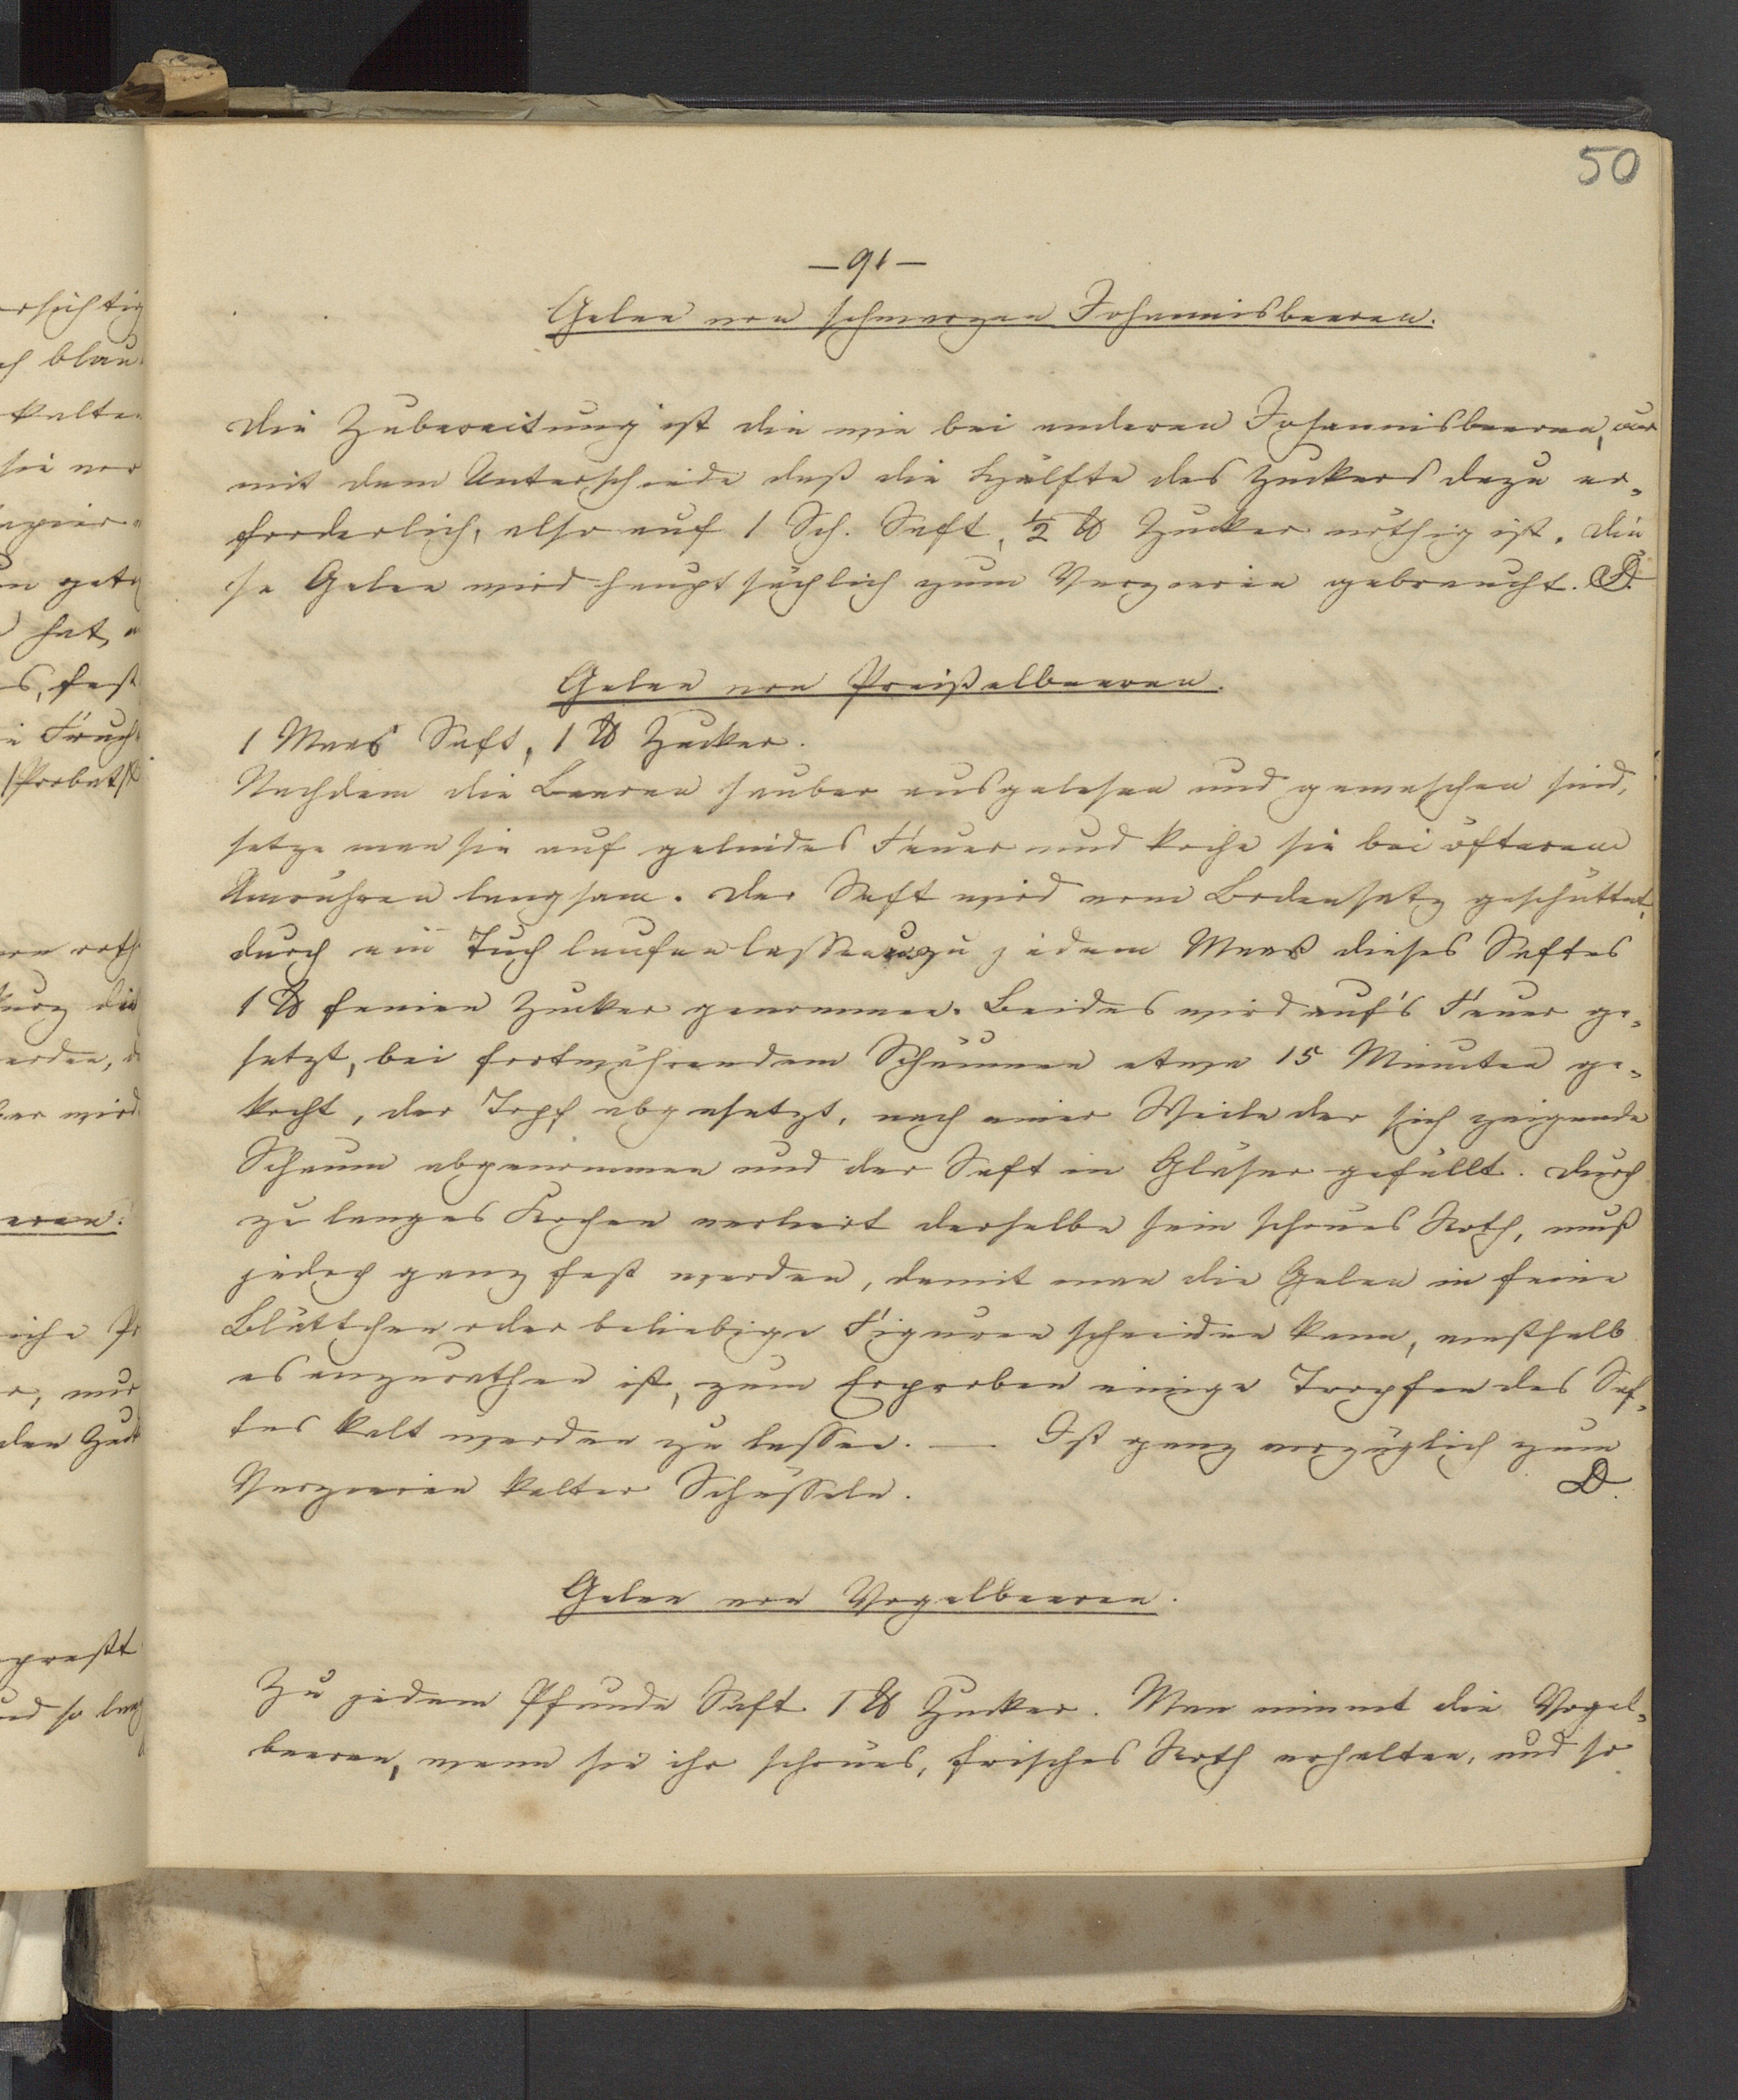 50
— 91 —
Gelee von schwarzen Johannisbeeren.
Die Zubereitung ist die wie bei anderen Johannisbeeren, nur
mit dem Unterschiede daß die Hälfte des Zuckers dazu er-
forderlich, also auf 1 Sch. Saft, ½ ℔ Zucker nöthig ist. Die
se Gelee wird hauptsächlich zum Verzieren gebraucht. D.
Gelee von Preißelbeeren.
1 Maas Saft, 1 ℔ Zucker.
Nachdem die Beeren sauber ausgelesen und gewaschen sind,
setze man sie auf gelindes Feuer und koche sie bei öfterem
Umrühren langsam. Der Saft wird vom Bodensatz geschüttet,
durch ein Tuch laufen lassen u. zu jedem Maas dieses Saftes
1 ℔ feinen Zucker genommen. Beides wird auf's Feuer ge-
setzt, bei fortwährendem Schäumen etwa 15 Minuten ge-
kocht, der Topf abgesetzt, nach einer Weile der sich zeigende
Schaum abgenommen und der Saft in Gläser gefüllt. Durch
zu langes Kochen verliert derselbe sein schönes Roth, muß
jedoch ganz fest werden, damit man die Gelee in feine
Blättchen oder beliebige Figuren schneiden kann, weßhalb
es anzurathen ist, zum Erproben einige Tropfen des Saf-
tes kalt werden zu lassen. — Ist ganz vorzüglich zum
Verzieren kalter Schüsseln. D.
Gelee von Vogelbeeren.
Zu jedem Pfunde Saft 1 ℔ Zucker. Man nimmt die Vogel-
beeren, wenn sie ihr schönes, frisches Roth erhalten, und so